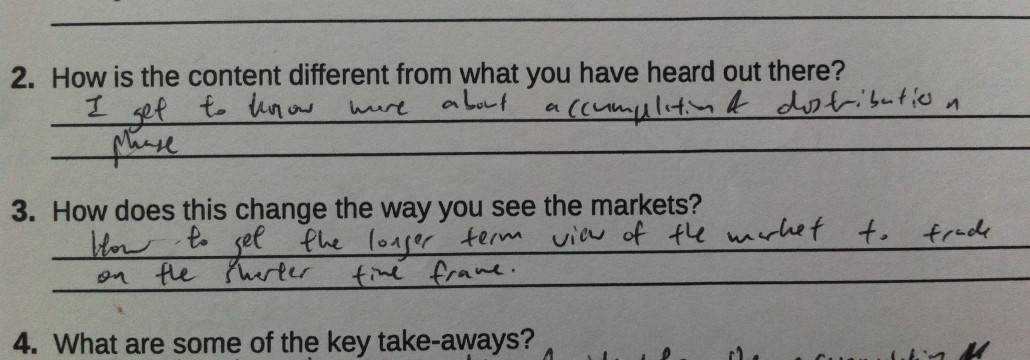 2. How is the content different from what you have heard out there?
I get to know more about accumplation & distribution
phase
3. How does this change the way you see the markets?
How to get the longer term view of the market to trade
on the shorter time frame.
4. What are some of the key take-aways?